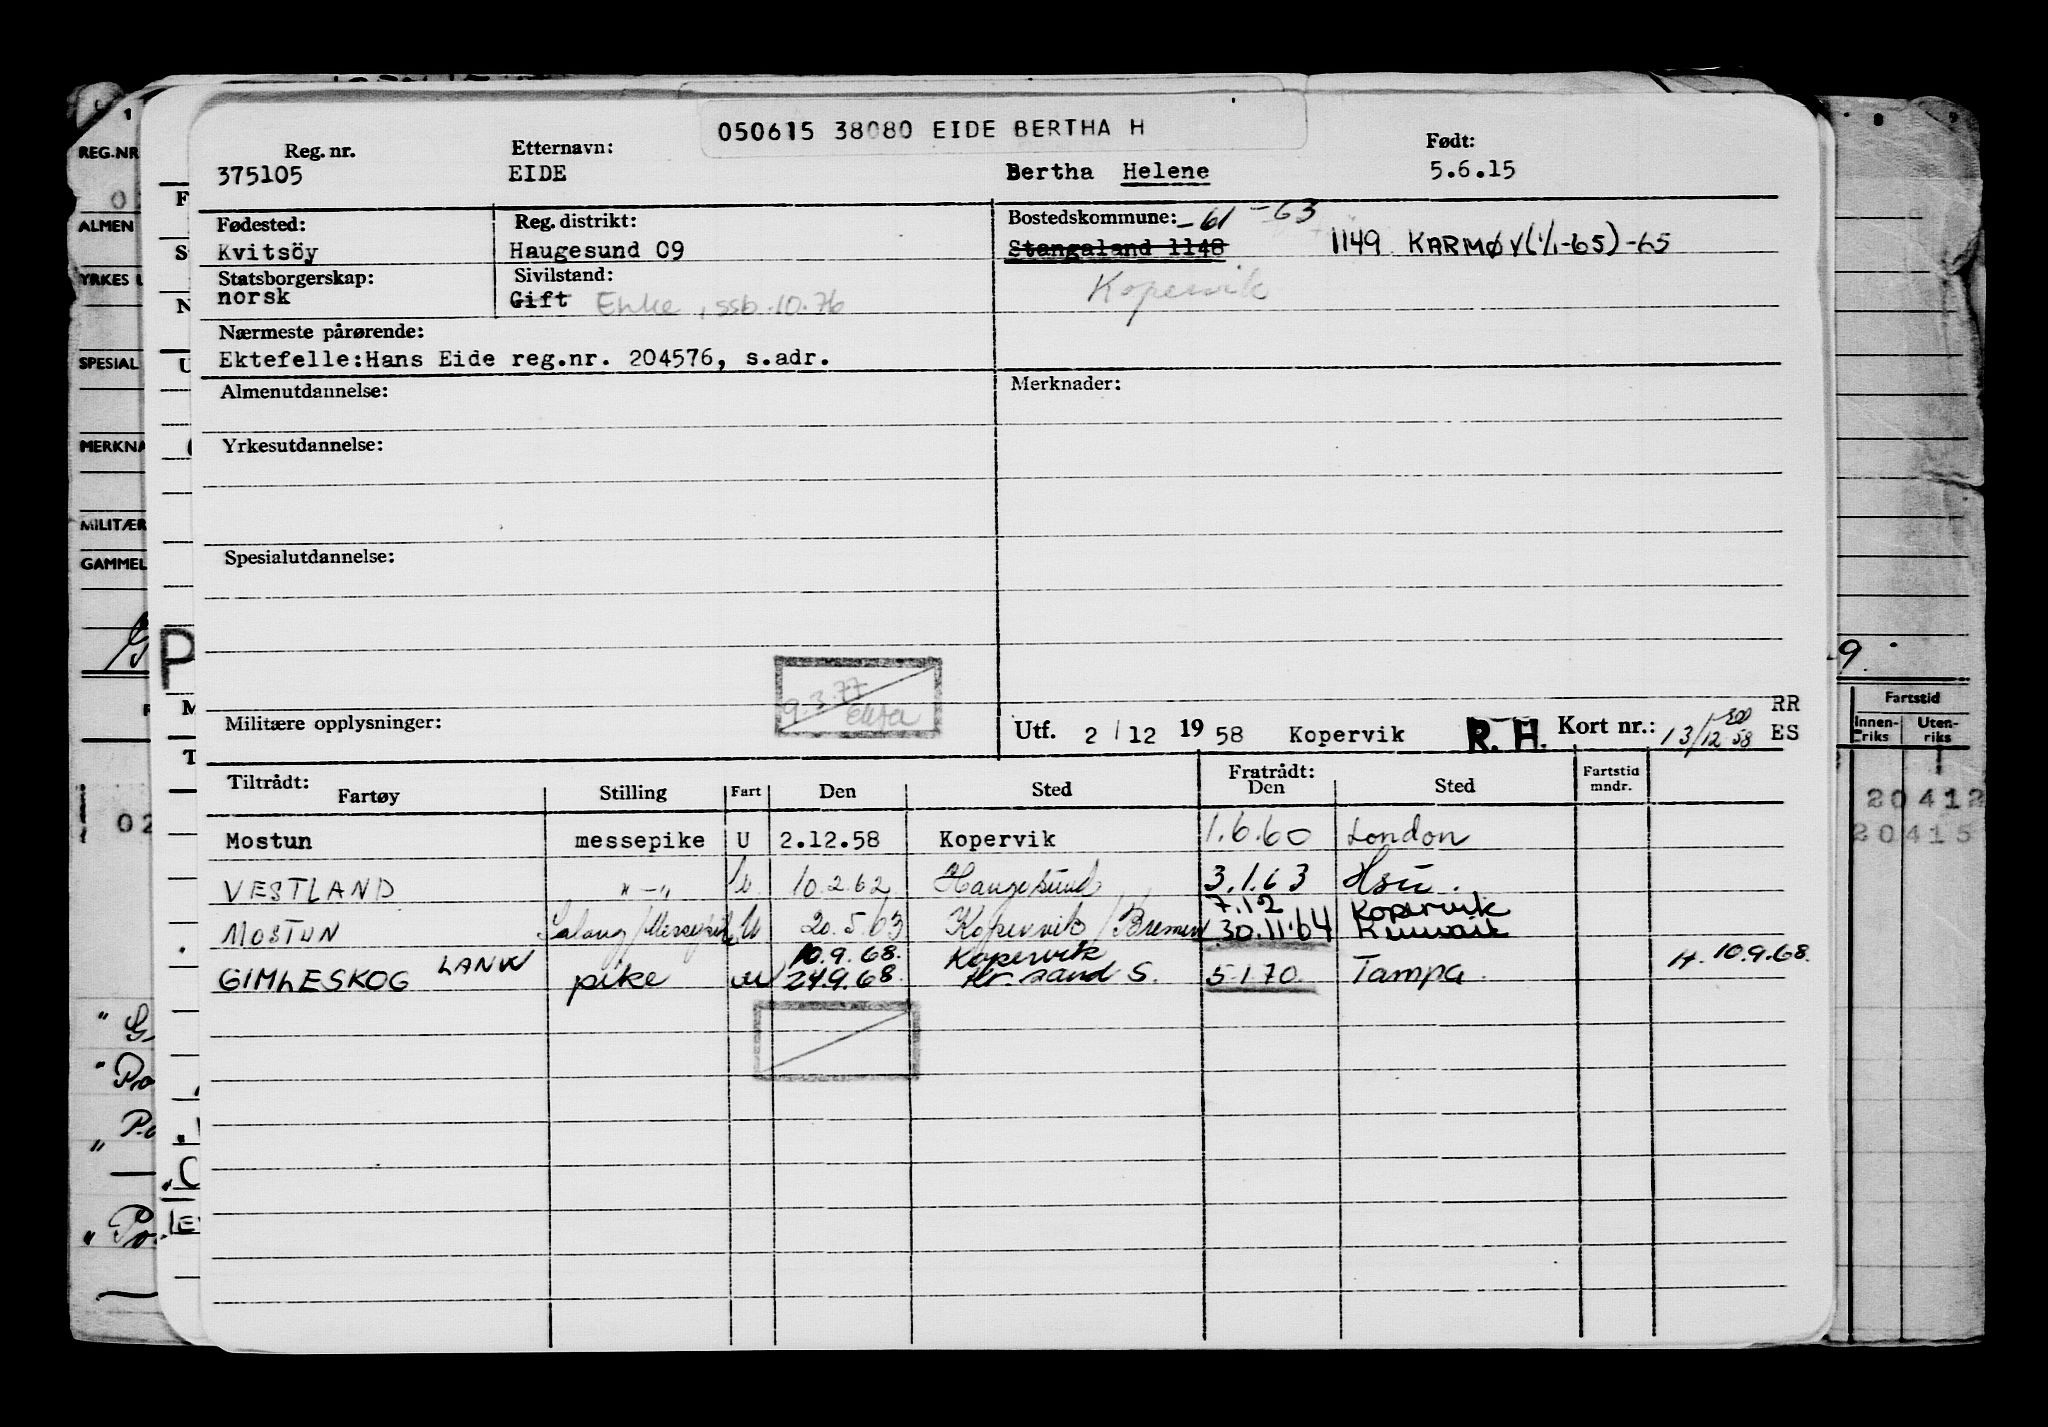 050615 38080 EIDE BERTHA H
Reg. nr. Etternavn: Født:
375105 EIDE Bertha Helene 5.6.15
Fødested: Reg. distrikt: Bostedskommune: -61 -63
Kvitsöy Haugesund 09 Stangaland 1148 1149 KARMØY (1/1-65) -65
Statsborgerskap: Sivilstand: Kopervik
norsk Gift Enke, ssb. 10.76
Nærmeste pårørende:
Ektefelle:Hans Eide reg.nr. 204576, s.adr.
Almenutdannelse: Merknader:
Yrkesutdannelse:
Spesialutdannelse:
9.3.77
Militære opplysninger: Utf. 2/12 1958 Kopervik R. H. Kort nr.: 13/12 58 RR ES
Tiltrådt: Fratrådt:
Fartøy Stilling Fart Den Sted Den Sted Fartstid mndr.
Mostun messepike U 2.12.58 Kopervik 1.6.60 London
VESTLAND "-" U 10.2.62 Haugesund 3.1.63 Hsu.
7.12 Kopervik
MOSTUN Salong/Messepike U 20.5.63 Kopervik/Bremen 30.11.64
10.9.68. Kopervik
GIMLESKOG LANW pike U 24.9.68. Kr.sand S. 5.1.70 Tampa. H. 10.9.68.
REG.NR
ALMEN
YRKES
SPESIAL
MERKNA
MILITÆR
GAMMEL
8 9
9.
Fartstid
Innenriks Utenriks
20412
20415
02